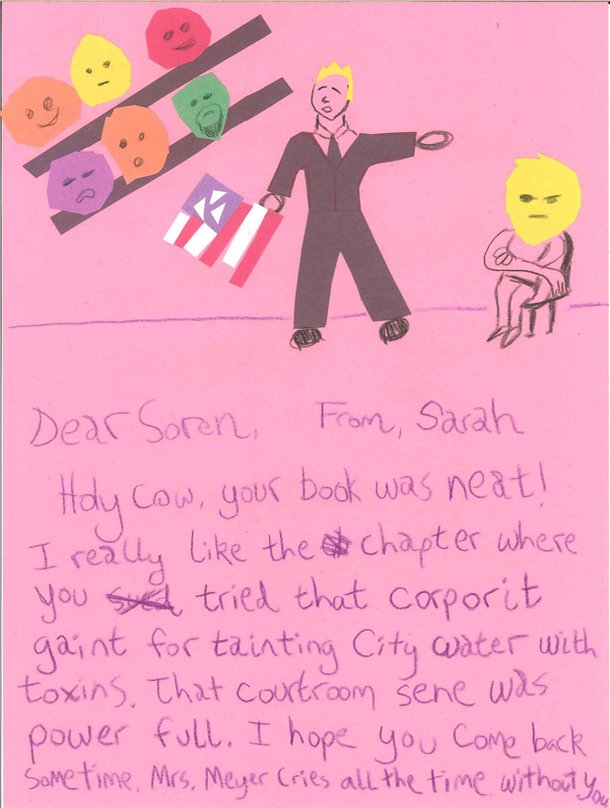 Dear Soren, From, Sarah
Holy Cow, your book was neat!
I really like the chapter where
you sued tried that corporit
gaint for tainting City water with
toxins. That courtroom sene was
power full. I hope you Come back
Sometime. Mrs. Meyer Cries all the time without You